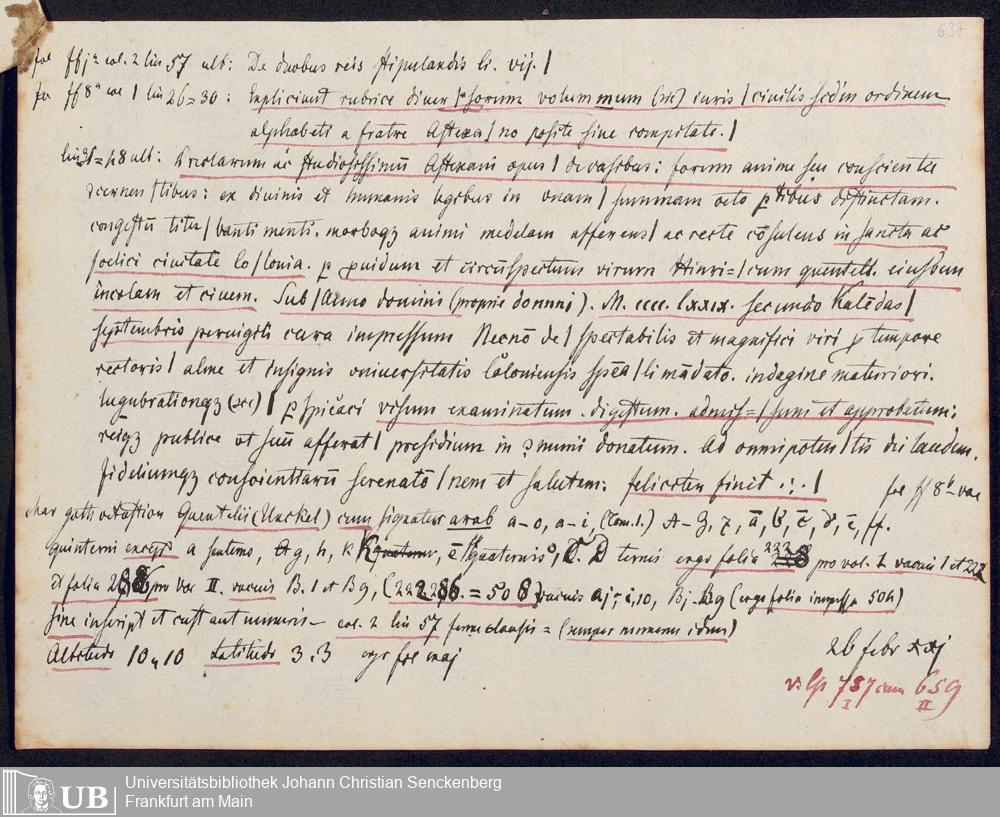 637
fol ffj a col. 2 lin 57 ult: De duobus reis stipulandis li. vij. |
fo ff 8 a col 1 lin 26=30: Expliciunt rubrice diuer | sorum volummum (sic) iuris | ciuilis scdm ordinem
alphabeti a fratre Astexa | no posite sine compilate. |
lin 31=48 ult: Preclarum ac studiosissimu Astexani opus | de casibus: forum anime seu conscientie
concernen | tibus: ex diuinis et humanis legibus in vnam | summam octo ptibus distinctam.
congestu titu | banti menti. morboqz animi medelam afferens | ac recte cosulens in sancta ac
foelici ciuitate Co | lonia. p puidum et circuspectum virum Hinri= | cum quentell. eiusdem
incolam et ciuem. Sub | Anno domini (proprie donnni). M. cccc. lxxix. secundo Kaledas |
septembris peruigili cura impressum Necno de | spectabilis et magnifici viri p tempore
rectoris | alme et insignis vniuersitatis Coloniensis spea | li madato. indagine maturiori.
lugubrationqz (sic) | pspicaci visum examinatum. digestum. admis= | sum et approbatum:
reiqz publice vt suu afferat | presidium in comuni donatum. Ad omnipoten | tis dei laudem.
fideliumqz conscientiaru serenato | nem et salutem: feliciter finit .:. | fol ff 8 b vac
char goth Quentelii (Unckel) cum signatur arab a-o, a-i, (tom. I.) A-Z, z, a, b, c, d, e, ff.
quinterni except a sexterno, g, h, K quaternis, C. D ternis ergo folia 222 pro vol. I vacuis 1 et 222
et folia 286 pro Vol II. vacuis B. 1 et B9, (222 286. = 508) vacuis aj, i,10, Bj B9 (ergo folia impressa 504)
sine inscript et cust aut numeris - col. 2 lin 57 forme clausis = (semper numerus idem)
Altitudo 10 10 Latitudo 3 . 3 ergo fol maj
26 febr xxj
vs Cp 757 cum 659
I II
UB
Universitätsbibliothek Johann Christian Senckenberg
Frankfurt am Main